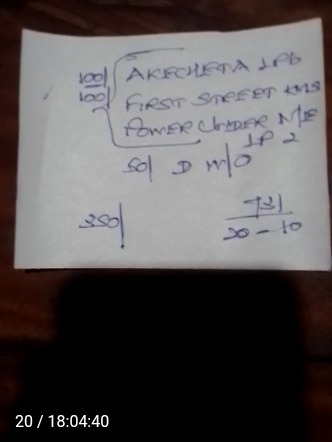 100/ AKECHETA 1P6
100/ FIRST STREET KMS
POWER UNDER N/E
1P 2
50/ D M/O
350/
731
20 - 10
20 / 18:04:40